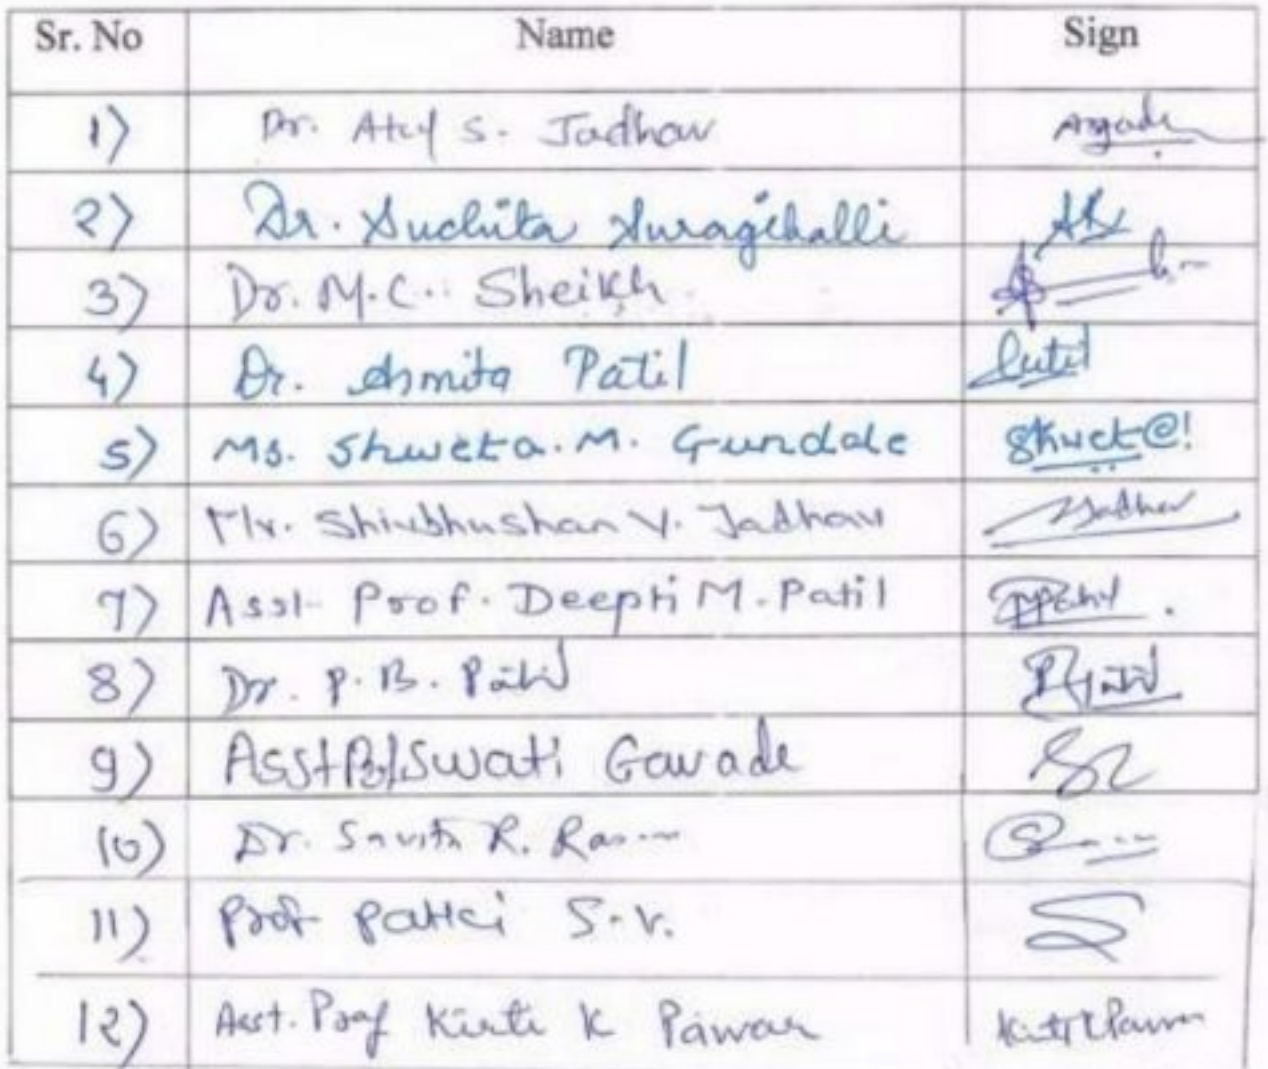 Sr. No Name Sign
1) Dr. S. Jadhav
2) Dr. Suchita Suragihalli
3) Dr. M.C. Sheikh
4) Dr. Asmita Patil Patil
5) Ms. Shweta. M. Gundale Shwet@!
6) Mr. Shivbhushan V. Jadhav Jadhav
7) Asst. Prof. Deepti M. Patil
8) Dr. P. B. Patil
9) Asst Prof Swati Gavade
10) Dr. Savita R.
11) Prof S. V.
12) Asst. Prof Kirti K Pawar Kirti K Pawar